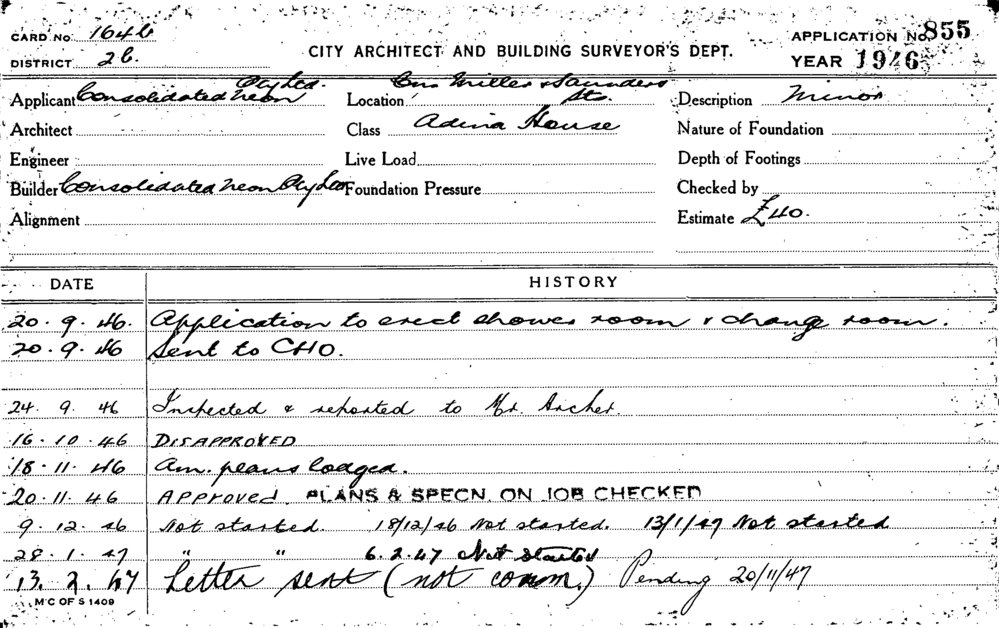 CARD No. 1646
APPLICATION No. 855
CITY ARCHITECT AND BUILDING SURVEYOR'S DEPT.
DISTRICT 26.
YEAR 1946
Applicant Consolidated Neon Pty Ltd.
Location Cnr Miller & Saunders Sts.
Description Minor
Architect
Class Adina House
Nature of Foundation
Engineer
Live Load
Depth of Footings
Builder Consolidated Neon Pty Ltd
Foundation Pressure
Checked by
Alignment
Estimate £40.
DATE HISTORY
20.9.46. Application to erect shower room & change room.
20.9.46 Sent to CHO.
24.9.46 Inspected & reported to Mr. Archer.
16.10.46 DISAPPROVED
18.11.46 Am. plans lodged.
20.11.46 APPROVED. PLANS & SPECN. ON JOB CHECKED
9.12.46 Not started. 18/12/46 Not started. 13/1/47 Not started
28.1.47 " " 6.2.47 Not Started
13.2.47 Letter sent (not comm.) Pending 20/11/47
M C OF S 1409